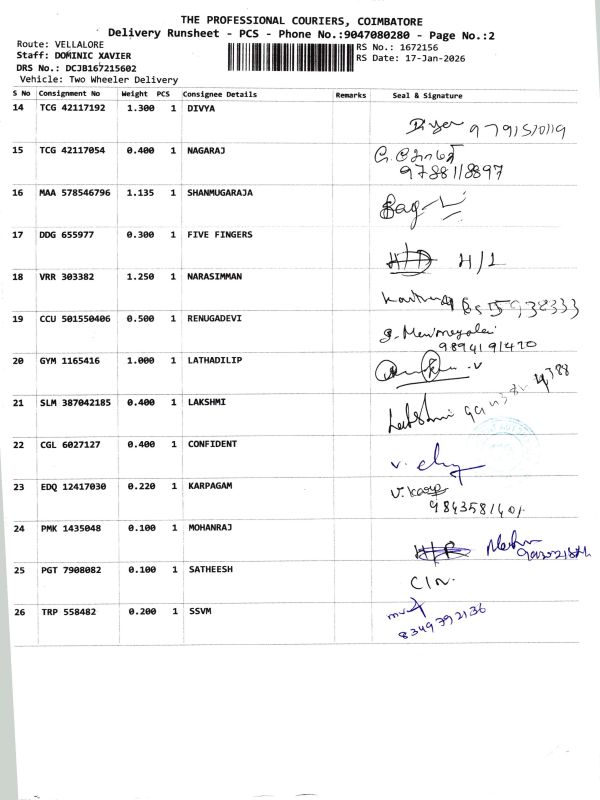 THE PROFESSIONAL COURIERS, COIMBATORE
Delivery Runsheet - PCS - Phone No.:9047080280 - Page No.:2
Route: VELLALORE
Staff: DOMINIC XAVIER
DRS No.: DCJB167215602
Vehicle: Two Wheeler Delivery
RS No.: 1672156
RS Date: 17-Jan-2026
S No Consignment No Weight PCS Consignee Details Remarks Seal & Signature
14 TCG 42117192 1.300 1 DIVYA
15 TCG 42117054 0.400 1 NAGARAJ
9788118897
16 MAA 578546796 1.135 1 SHANMUGARAJA
17 DDG 655977 0.300 1 FIVE FINGERS
H/L
18 VRR 303382 1.250 1 NARASIMMAN
19 CCU 501550406 0.500 1 RENUGADEVI
9894191420
20 GYM 1165416 1.000 1 LATHADILIP
21 SLM 387042185 0.400 1 LAKSHMI
Lakshmi
22 CGL 6027127 0.400 1 CONFIDENT
23 EDQ 12417030 0.220 1 KARPAGAM
24 PMK 1435048 0.100 1 MOHANRAJ
25 PGT 7908082 0.100 1 SATHEESH
26 TRP 558482 0.200 1 SSVM
8349792136